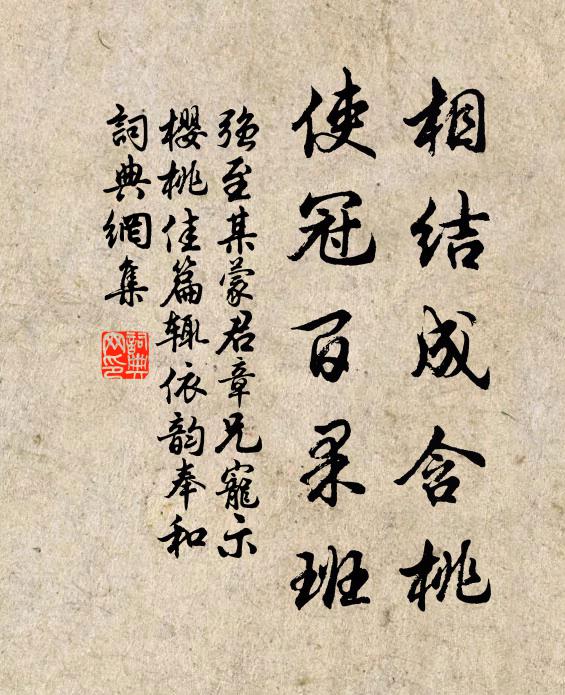 相结成含桃
使冠百果班
强至某蒙君章兄寵示
樱桃佳篇辄依韵奉和
詞典網集
詞典网印